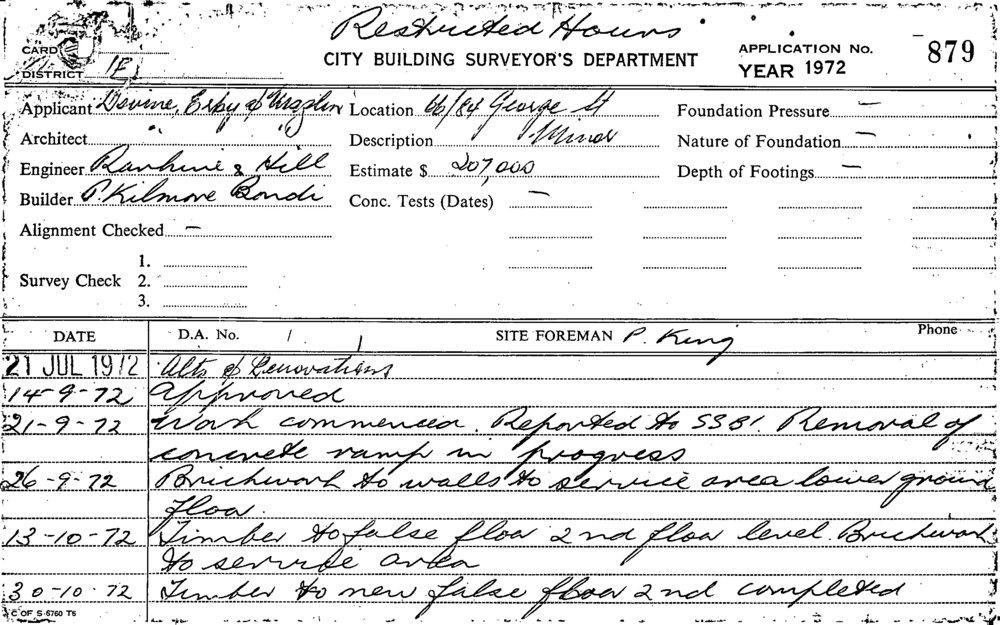 Restricted Hours
CARD
CITY BUILDING SURVEYOR'S DEPARTMENT
APPLICATION No. 879
DISTRICT 1F
YEAR 1972
Applicant Devine, Erby & Mazlin Location 66/84 George St Foundation Pressure —
Architect " " Description Minor Nature of Foundation —
Engineer Rankine & Hill Estimate $ 207,000 Depth of Footings —
Builder P. Kilmore Bondi Conc. Tests (Dates) —
Alignment Checked —
1.
Survey Check 2.
3.
DATE D.A. No. / / SITE FOREMAN P. King Phone
21 JUL 1972 Alts & Renovations
14-9-72 Approved
21-9-72 Work commenced. Reported to SSBI. Removal of
concrete ramp in progress
26-9-72 Brickwork to walls to service area lower ground
floor.
13-10-72 Timber to false floor 2nd floor level. Brickwork
to service area
30-10-72 Timber to new false floor 2nd completed
C OF S 6760 T6